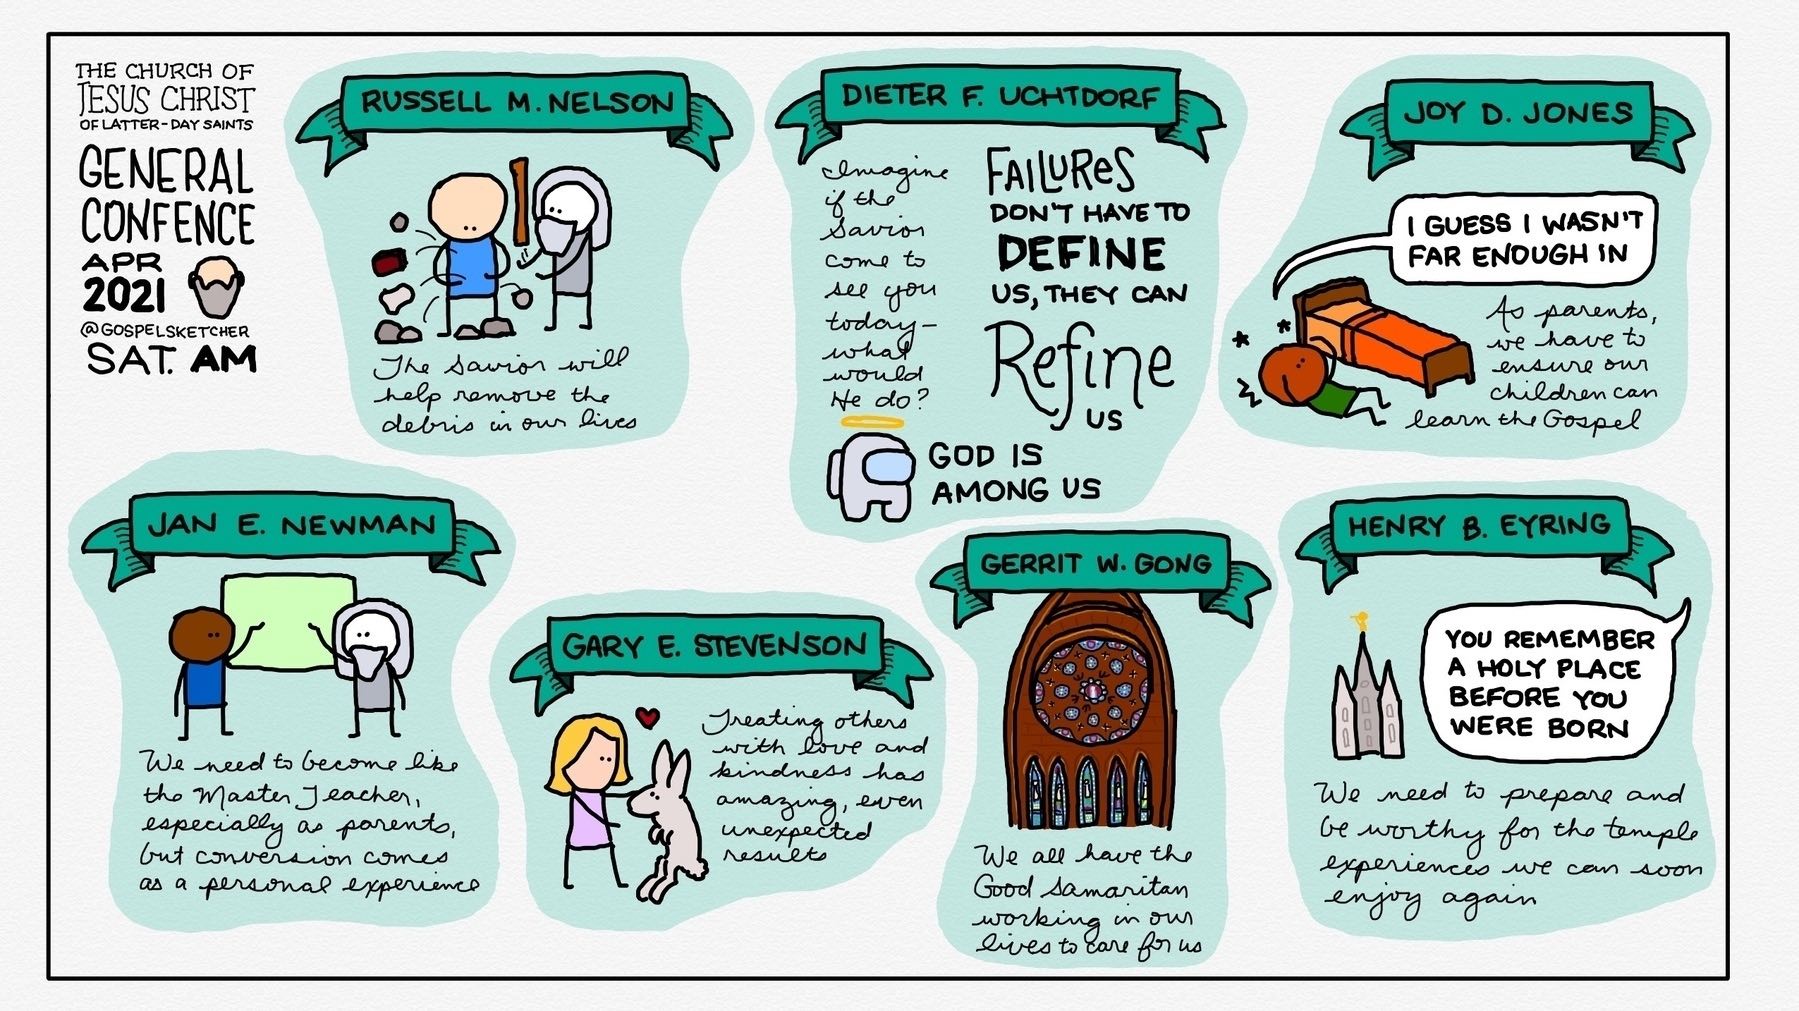 THE CHURCH OF
JESUS CHRIST
OF LATTER-DAY SAINTS
GENERAL
CONFENCE
APR
2021
@GOSPELSKETCHER
SAT. AM
RUSSELL M. NELSON
The Savior will
help remove the
debris in our lives
DIETER F. UCHTDORF
Imagine
if the
Savior
come to
see you
today-
what
would
He do?
FAILUReS
DON'T HAVE TO
DEFINE
US, THEY CAN
Refine
US
GOD IS
AMONG US
JOY D. JONES
I GUESS I WASN'T
FAR ENOUGH IN
As parents,
we have to
ensure our
children can
learn the Gospel
JAN E. NEWMAN
We need to become like
the Master Teacher,
especially as parents,
but conversion comes
as a personal experience
GARY E. STEVENSON
Treating others
with love and
kindness has
amazing, even
unexpected
results
GERRIT W. GONG
We all have the
Good Samaritan
working in our
lives to care for us
HENRY B. EYRING
YOU REMEMBER
A HOLY PLACE
BEFORE YOU
WERE BORN
We need to prepare and
be worthy for the temple
experiences we can soon
enjoy again